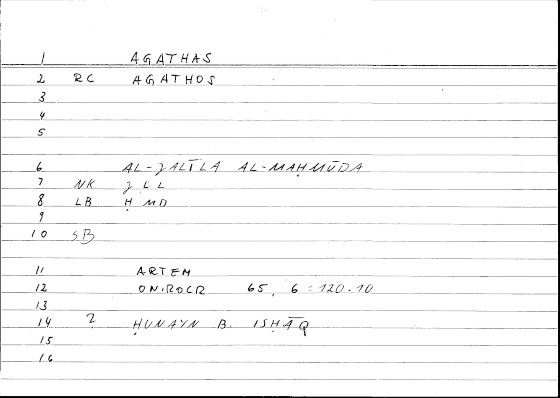 1 AGATHAS
2 RC AGATHOS
3
4
5
6 AL-ǦALĪLA AL-MAḤMŪDA
7 NK Ǧ L L
8 LB Ḥ MD
9
10 SB
11 ARTEM
12 ONIROCR 65, 6 = 120.10
13
14 2 ḤUNAYN B. ISḤĀQ
15
16